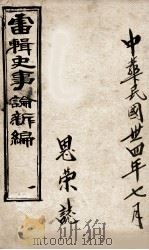 中華民國卅四年七月
恩榮誌
輯史事論新編
一